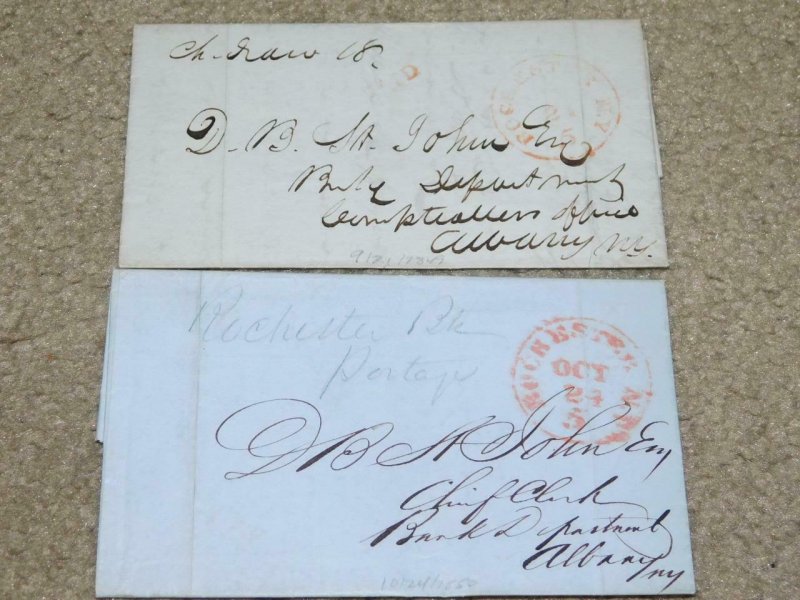 D. B. St. John Esq
Department
Comptrollers Office
Albany NY.
ROCHESTER NY
Rochester Bk
Portage
ROCHESTER N.Y.
OCT
24
D B St John Esq
Chief Clerk
Bank Department
Albany
NY
10/24/1850